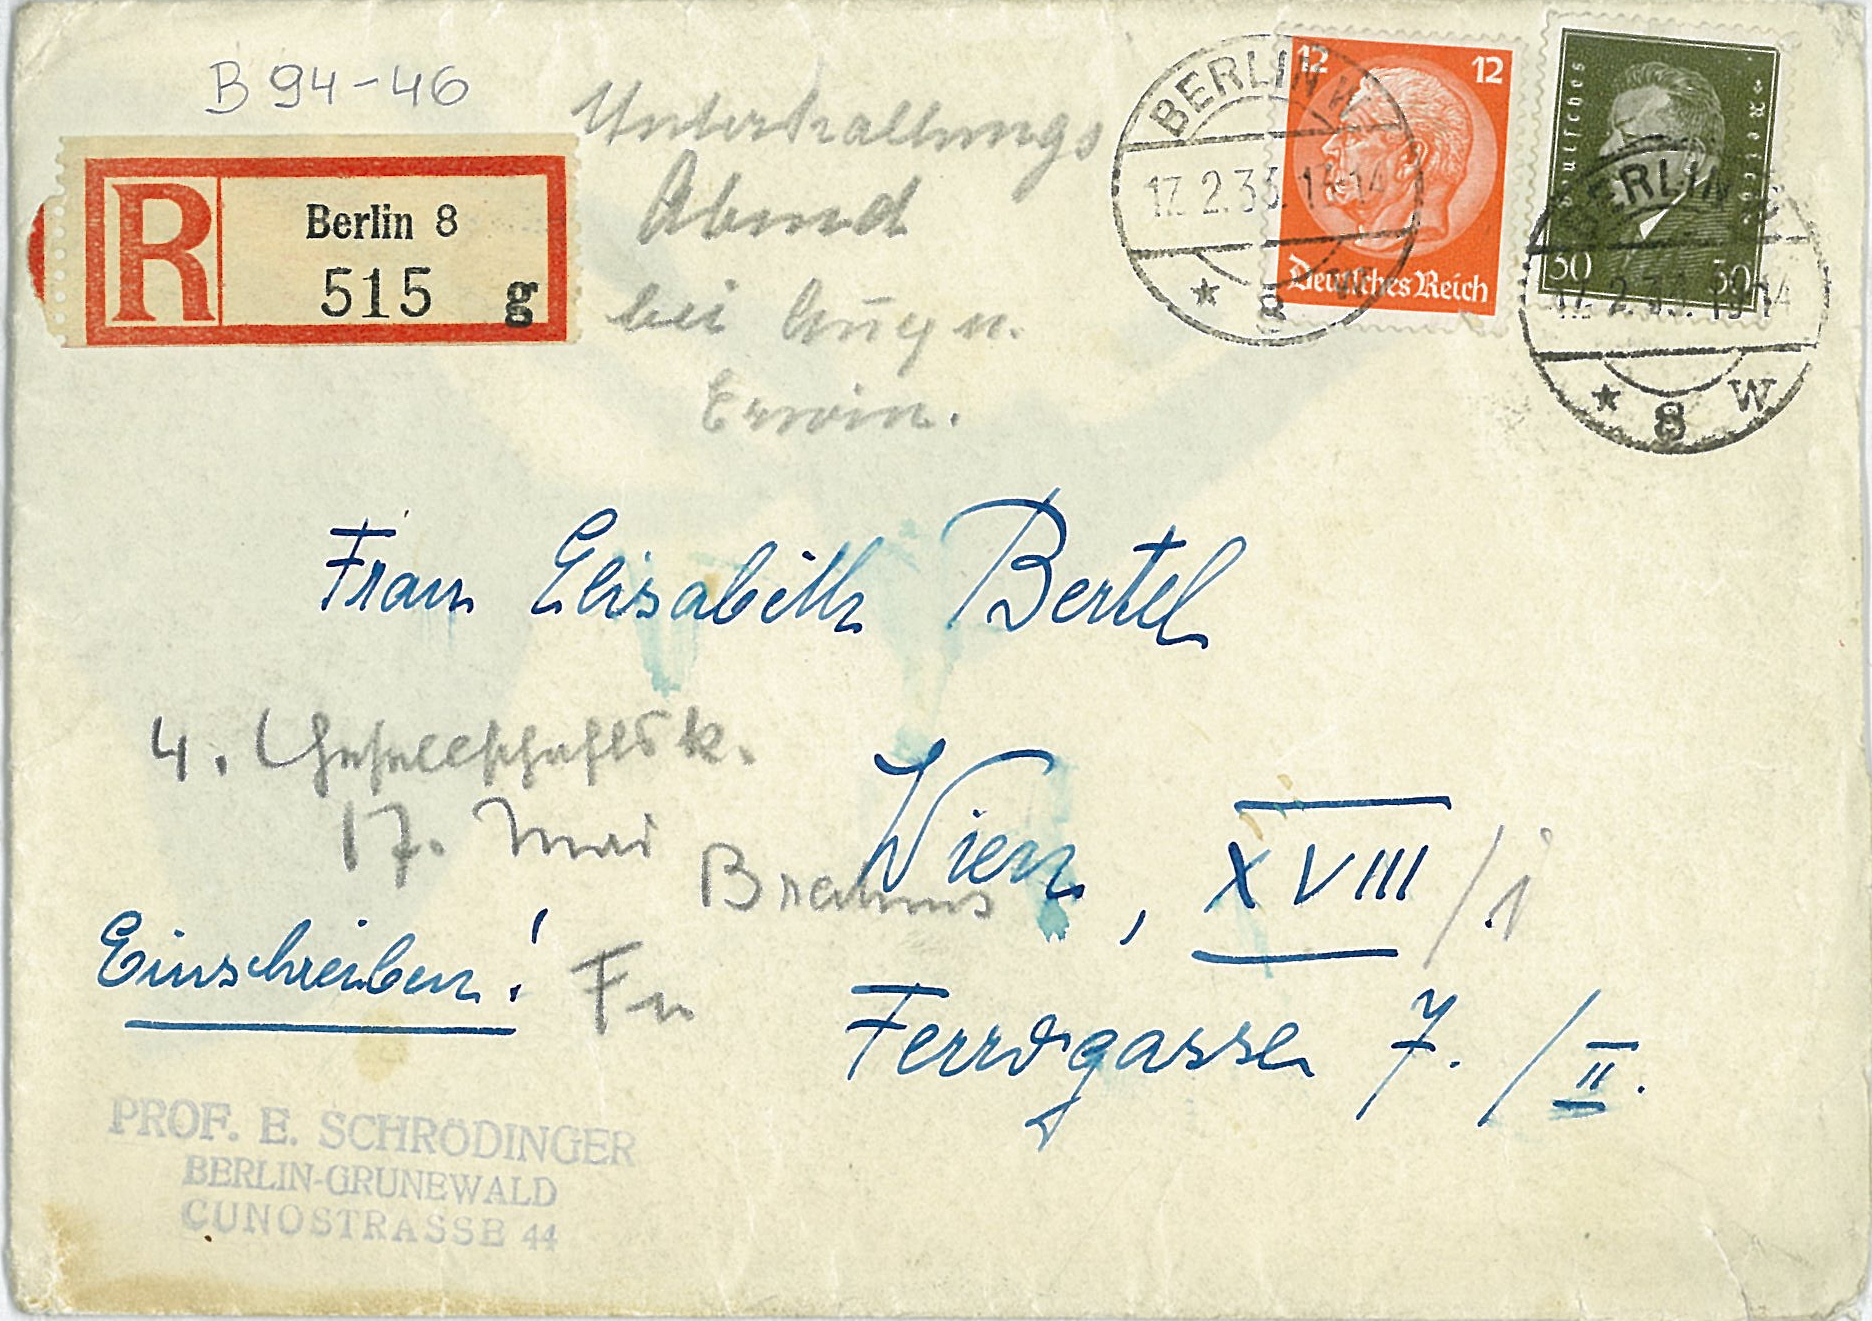 B 94-46
R
Berlin 8
515 g
Unterhaltungs
Abend
bei
Erwin.
BERLIN W
17.2.33.13-14
* 8 W
12 12
Deutsches Reich
BERLIN W
17.2.33.13-14
* 8 W
Deutsches Reich
50 50
Frau Elisabeth Bertel
4. Gesellschaftsk.
17. Mai
Brahms
Wien, XVIII / 1
Einschreiben!
Ferrogasse 7. / II.
PROF. E. SCHRÖDINGER
BERLIN-GRUNEWALD
CUNOSTRASSE 44